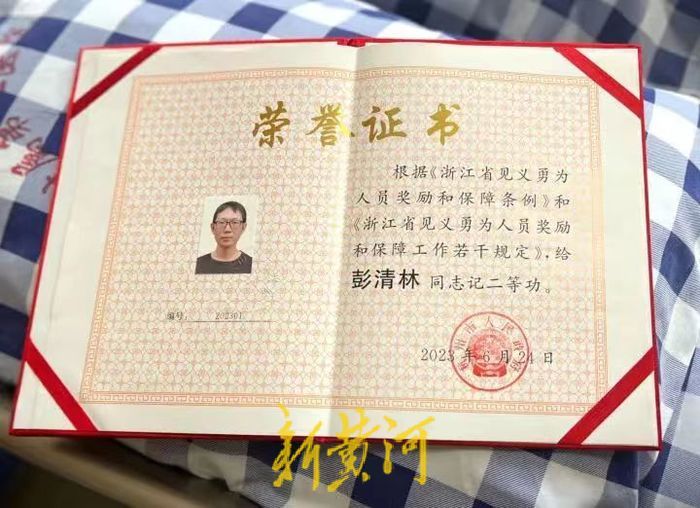 荣誉证书
根据《浙江省见义勇为
人员奖励和保障条例》和
《浙江省见义勇为人员奖励
和保障工作若干规定》,给
彭清林 同志记二等功。
编号: 202301
2023 年 6 月 24 日
新黄河